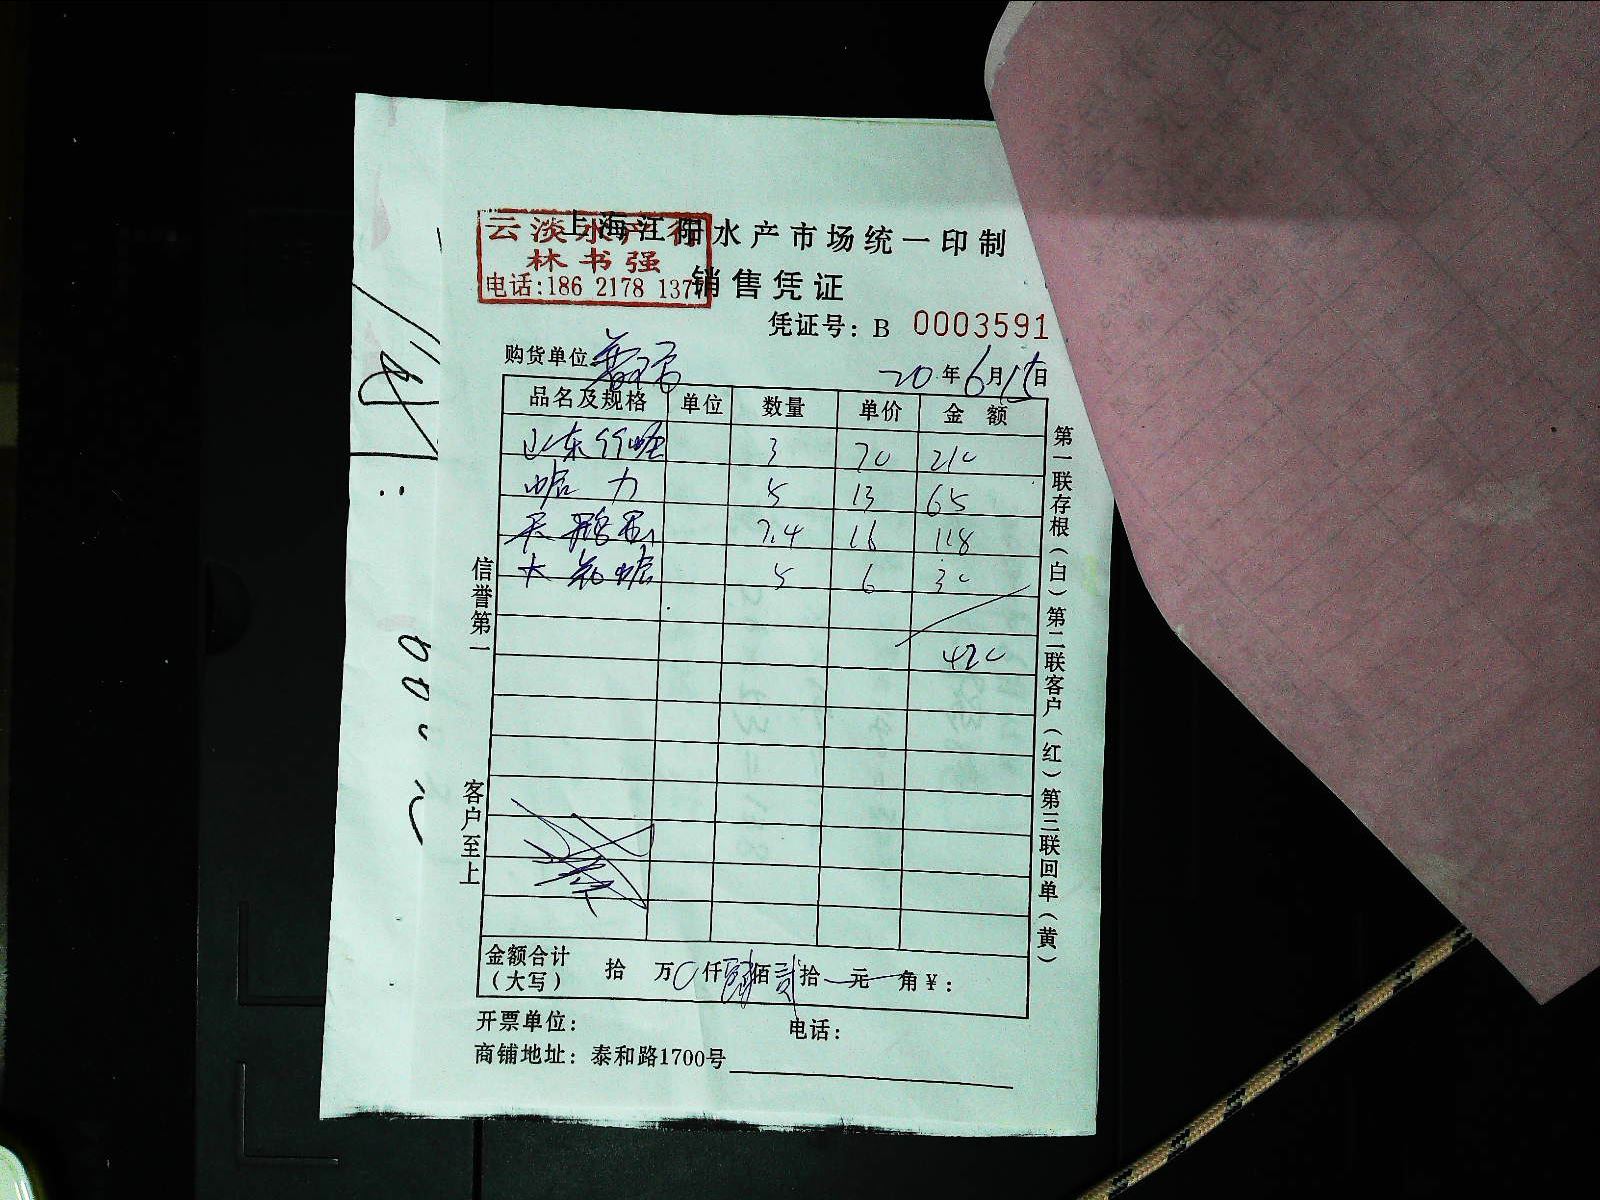 上海江阳水产市场统一印制
云淡水产行
林书强
电话:186 2178 137
销售凭证
凭证号: B 0003591
购货单位
20年6月15日
品名及规格 单位 数量 单价 金额
山东竹蛏 3 70 210
蛤力 5 13 65
天鹅蛋 7.4 16 118
大花蛤 5 6 30
420
金额合计(大写) 拾 万0仟肆佰贰拾 元 角¥:
开票单位: 电话:
商铺地址: 泰和路1700号
信誉第一
客户至上
第一联存根(白)第二联客户(红)第三联回单(黄)